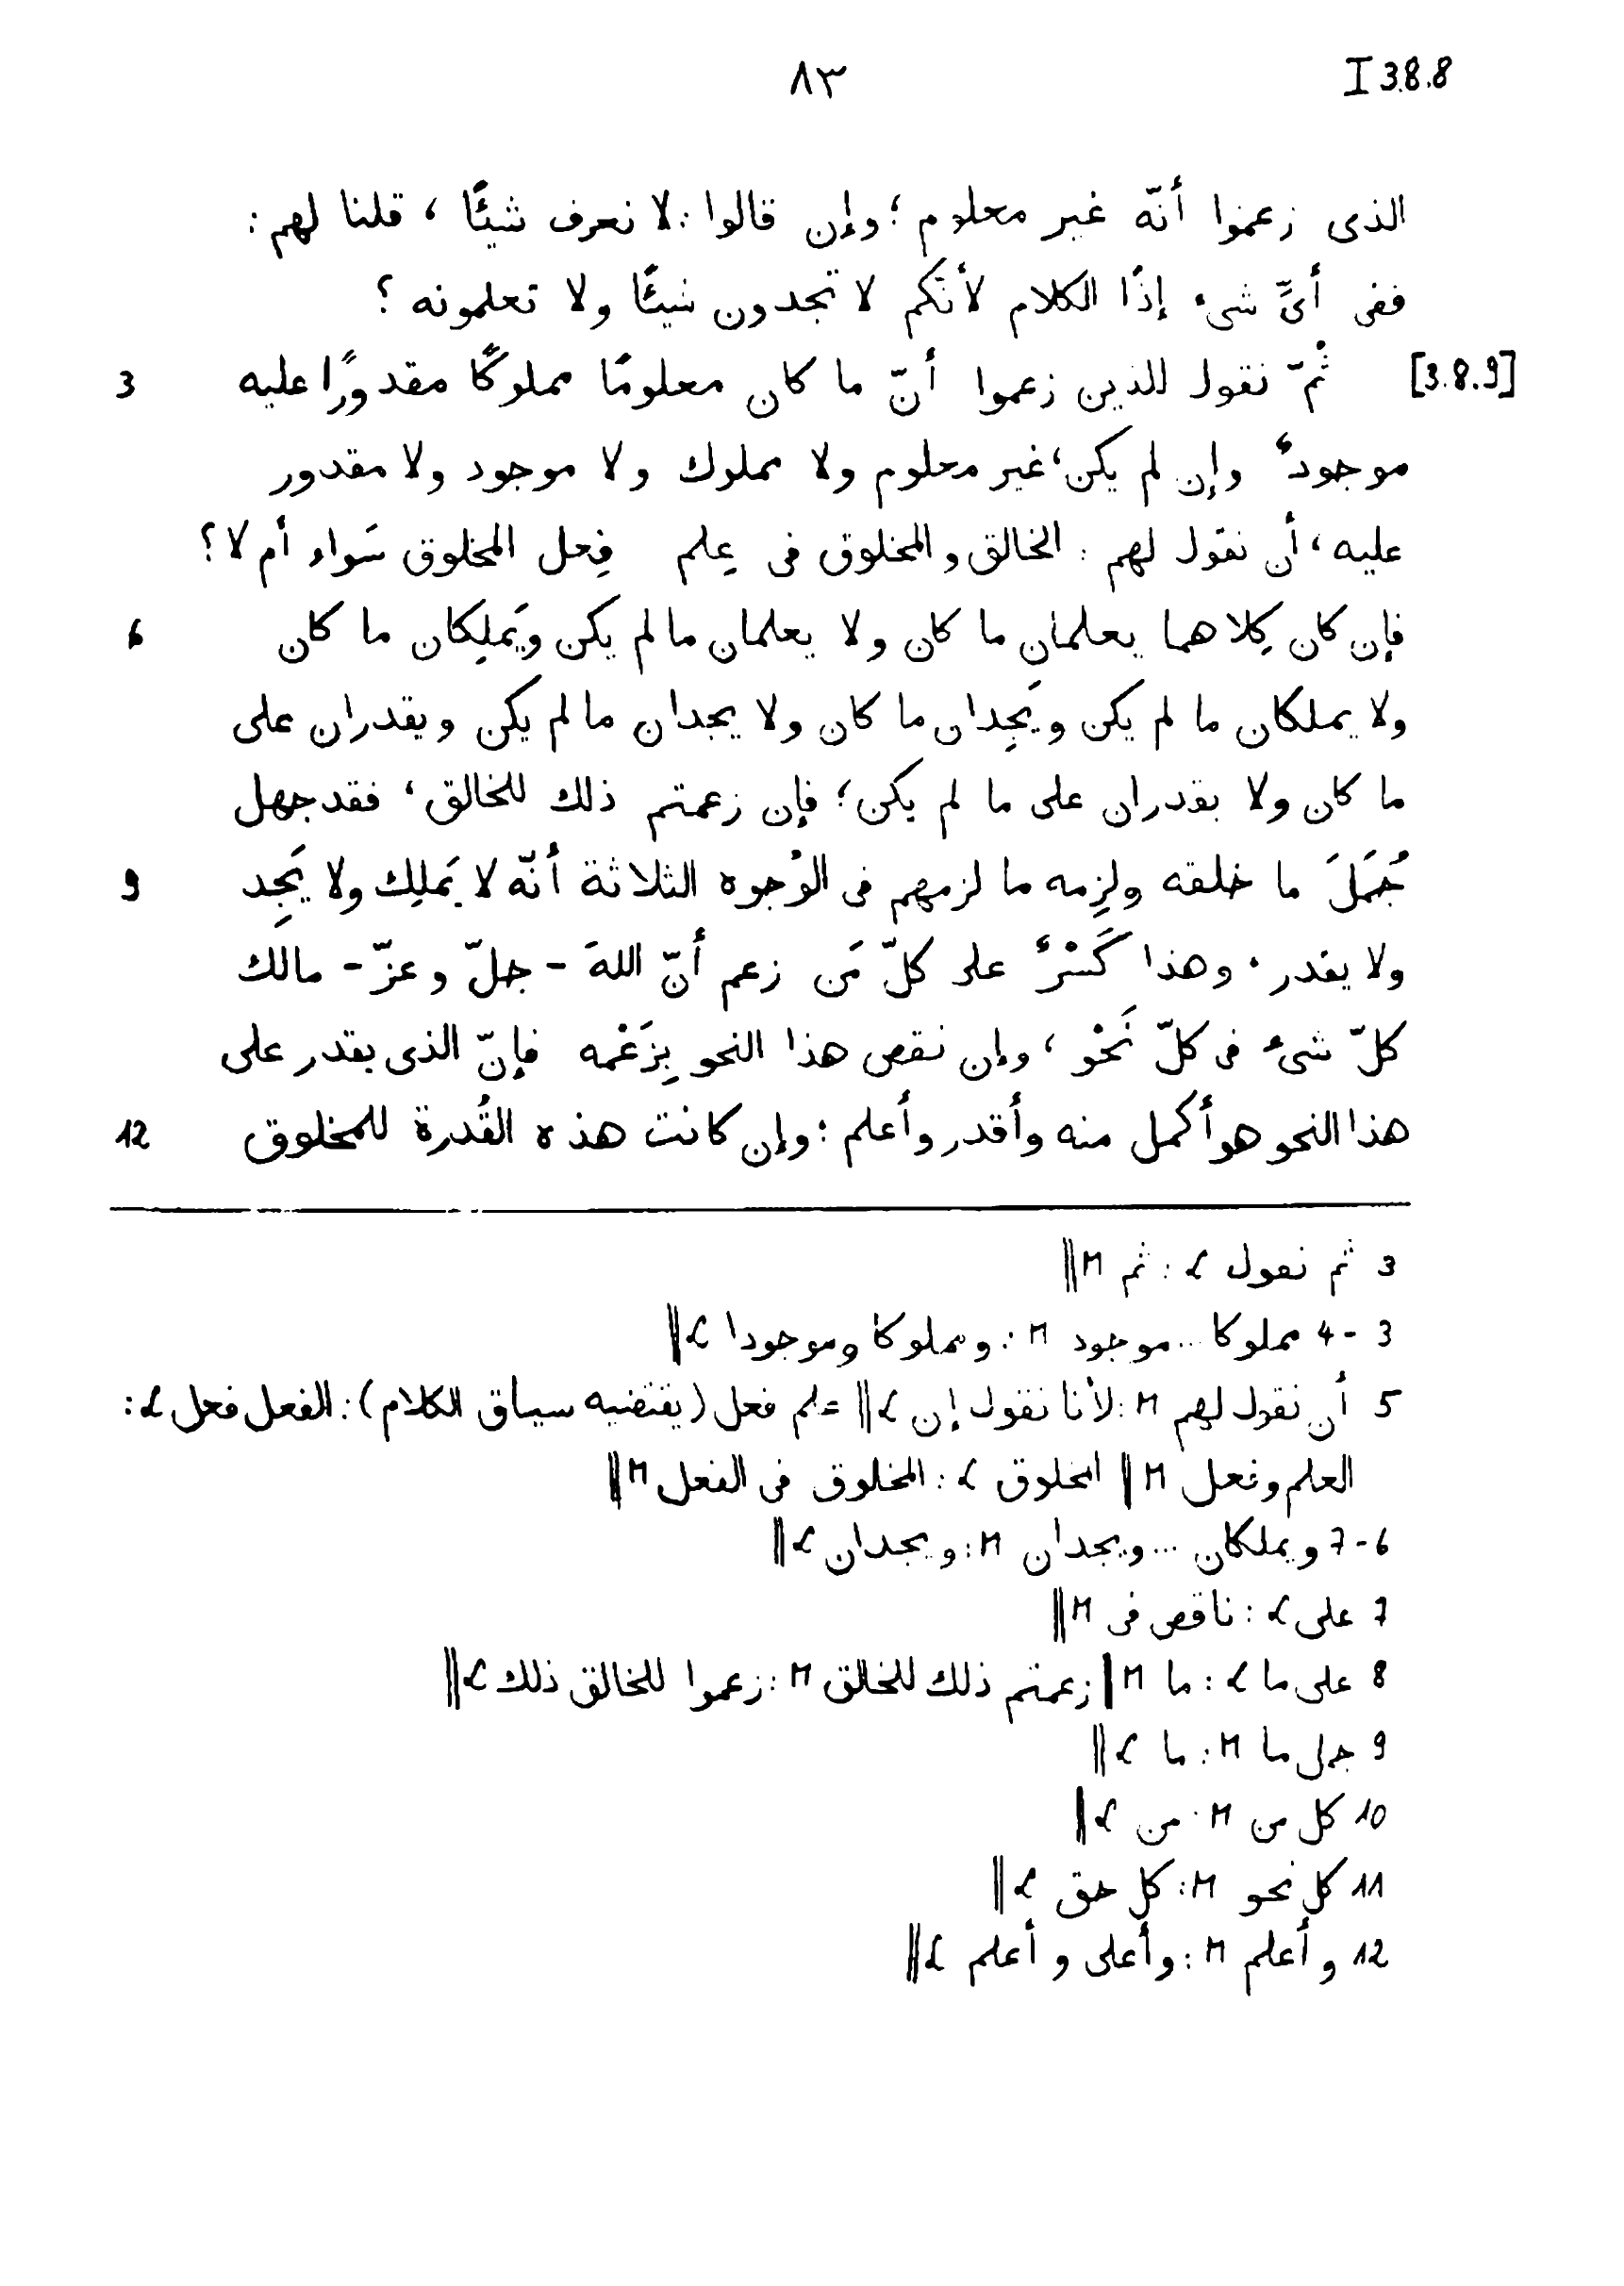 ٨٣ I 3.8.8
الذى زعموا أنّه غير معلوم ؛ وإن قالوا : لا نعرف شيئًا ، قلنا لهم :
ففى أىِّ شىء إذًا الكلام لأنّكم لا تجدون شيئًا ولا تعلمونه ؟
[3.8.9] ثُمّ نقول للذين زعموا أنّ ما كان معلومًا مملوكًا مقدورًا عليه 3
موجودٌ وإن لم يكن ، غير معلوم ولا مملوك ولا موجود ولا مقدور
عليه ، أن نقول لهم : الخالق والمخلوق فى عِلم فِعل المخلوق سَواء أم لا ؟
فإن كان كِلاهما يعلمان ما كان ولا يعلمان ما لم يكن ويَملِكان ما كان 6
ولا يملكان ما لم يكن ويَجِدان ما كان ولا يجدان ما لم يكن ويقدران على
ما كان ولا يقدران على ما لم يكن ؛ فإن زعمتم ذلك للخالق ، فقد جهل
جُمَلَ ما خلقه ولزِمه ما لزمهم فى الوُجوه الثلاثة أنّه لا يَملِك ولا يَجِد 9
ولا يقدر . وهذا كَسْرٌ على كلّ مَن زعم أنّ اللهَ - جلّ وعزّ - مالك
كلّ شىء فى كلّ نَحْو ، وإن نقص هذا النحو بِزَعْمه فإنّ الذى يقدر على
هذا النحو هو أكمل منه وأقدر وأعلم ؛ وإن كانت هذه القُدرة للمخلوق 12
3 ثم نقول ﻟ : ثم M ||
3 - 4 مملوكا ... موجود M : ومملوكا وموجودا ﻟ ||
5 أن نقول لهم M : لأنا نقول إن ﻟ || علم فعل (يقتضيه سياق الكلام) : الفعل فعل ﻟ :
العلم وفعل M || المخلوق ﻟ : المخلوق فى الفعل M ||
6 - 7 ويملكان ... ويجدان M : ويجدان ﻟ ||
7 على ﻟ : ناقص فى M ||
8 على ما ﻟ : ما M || زعمتم ذلك للخالق M : زعموا للخالق ذلك ﻟ ||
9 جمل ما M : ما ﻟ ||
10 كل من M : من ﻟ ||
11 كل نحو M : كل حق ﻟ ||
12 وأعلم M : وأعلى وأعلم ﻟ ||